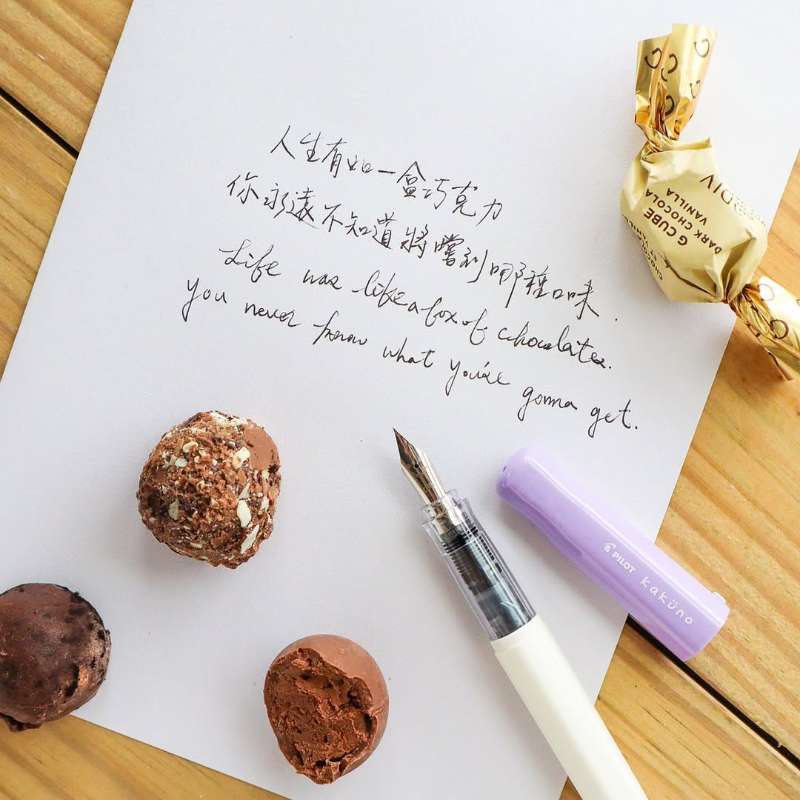 人生有如一盒巧克力
你永遠不知道將嚐到哪種口味.
Life was like a box of chocolates.
You never know what you're gonna get.
G CUBE
DARK CHOCOLA
VANILLA
PILOT kaküno